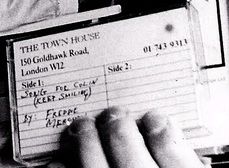 THE TOWN HOUSE
150 Goldhawk Road,
London W12
01 743 9313
Side 1:
Side 2:
SONG FOR COLIN
(KEEP SMILING)
By: FREDDIE